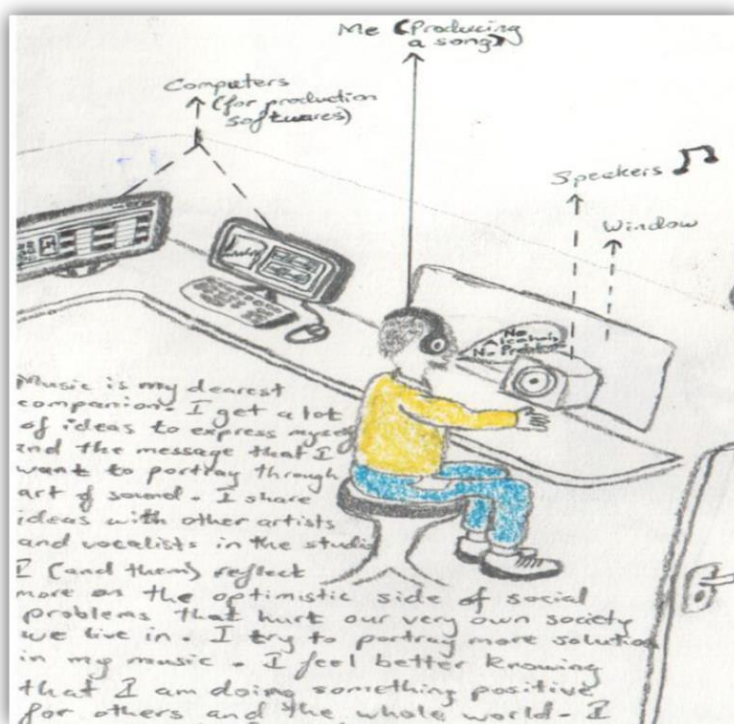 Me (Producing
a song)
Computers
(for production
softwares)
Speakers
Window
No
Alcohols
No Problem
Music is my dearest
companion. I get a lot
of ideas to express myself
and the message that I
want to portray through
art of sound. I share
ideas with other artists
and vocalists in the studio
I (and them) reflect
more on the optimistic side of social
problems that hurt our very own society
we live in. I try to portray more solution
in my music. I feel better knowing
that I am doing something positive
for others and the whole world. I